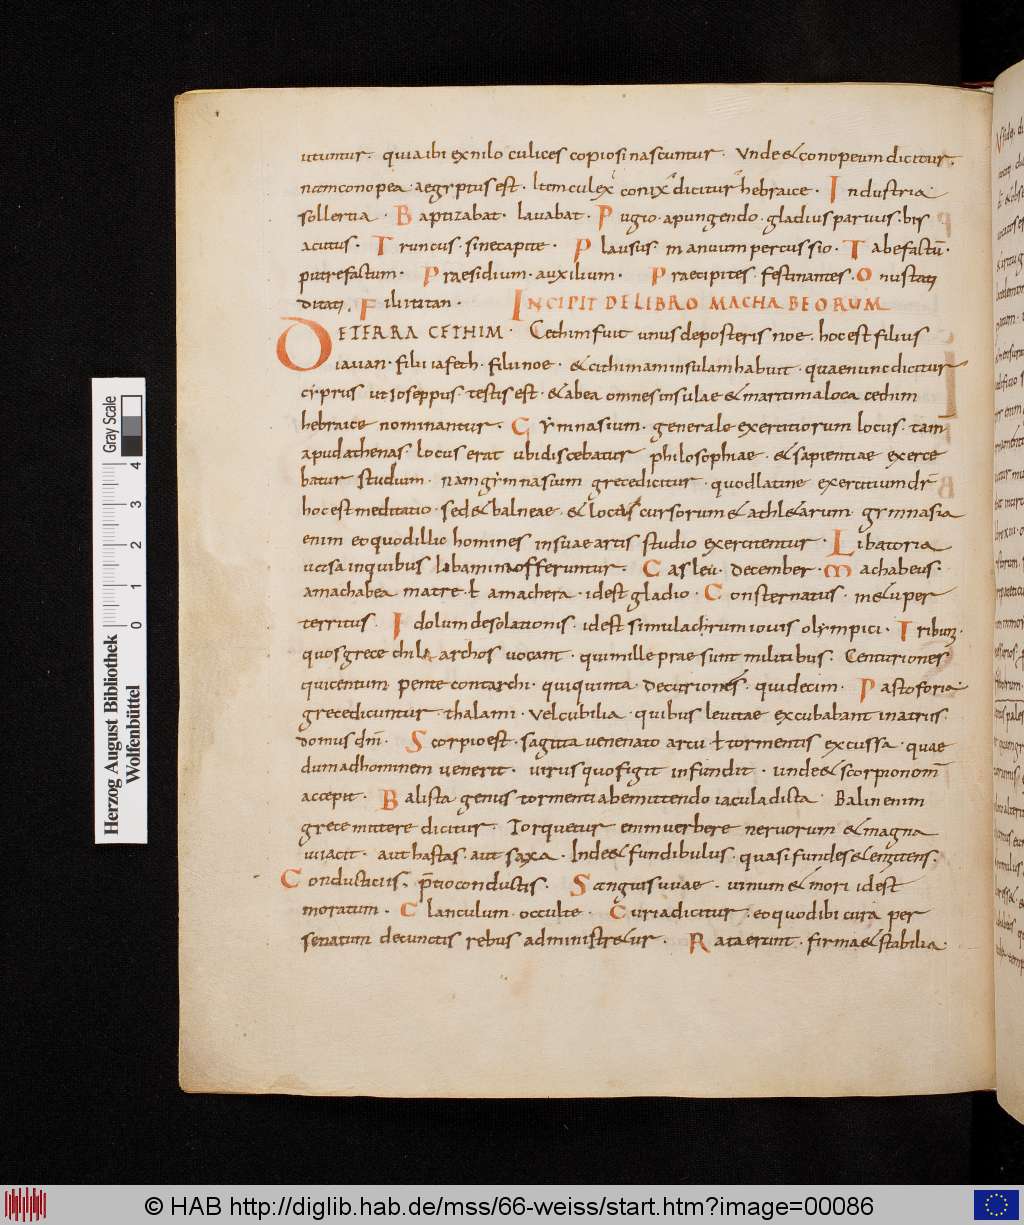 utuntur. quia ibi ex nilo culices copiosi nascuntur. Unde & conopeum dicitur.
nam conopea aegyptus est. Item culex conix dicitur hebraice. Industria
sollertia. Baptizabat. lavabat. Pugio. a pungendo. gladius parvus. bis
acutus. Truncus. sine capite. Plausus. manuum percussio. Tabefactū.
putrefactum. Praesidium. auxilium. Praecipites. festinantes. Onustati
ditati. Filii titan. INCIPIT DE LIBRO MACHABEORUM
DE TERRA CETHIM. Cethim fuit unus de posteris noe. hoc est filius
iavan. filii iafeth. filii noe. & cithimam insulam habuit. quae nunc dicitur
cyprus ut ioseppus testis est. & ab ea omnes insulae & maritima loca cethim
hebraice nominantur. Gymnasium. generale exercitiorum locus. tam
apud athenas. locus erat ubi discebatur philosophiae. & sapientiae exerce
batur studium. nam gymnasium grece dicitur. quod latine exercitium dr̄
hoc est meditatio. sed & balneae. & loca cursorum & athl&arum gymnasia
enim eo quod illic homines in suae artis studio exercitentur. Libatoria
vasa in quibus libamina offeruntur. Casleu. december. Machabeus.
a machabea matre. ł a machera. id est gladio. Consternatus. m&u per
territus. Idolum desolationis. id est simulachrum iovis olympici. Tribunos.
quos grece chiliarchos vocant. qui mille praesunt militibus. Centuriones
qui centum pentecontarchi. qui quinta. Decuriones. qui decim. Pastoforia
grece dicuntur thalami. vel cubilia. quibus levitae excubabant in atriis
domus dn̄i. Scorpio est. sagitta venenato arcu ł tormentis excussa. quae
dum ad hominem venerit. virus quo figit infundit. unde & scorpio nom̄
accepit. Balista genus tormenti ab emittendo iacula dicta. Balin enim
grece mittere dicitur. Torquetur enim verbere nervorum & magna
vi iacit. aut hastas. aut saxa. Inde & fundibulus. quasi fundes & emittens.
Conducticiis. p̄tio conductis. Sanguis uvae. vinum & mori id est
moratum. Clanculum. occulte. Curia dicitur. eo quod ibi cura per
senatum de cunctis rebus administr&ur. Rata erunt. firma & stabilia.
Herzog August Bibliothek
Wolfenbüttel
Gray Scale
0 1 2 3 4
© HAB http://diglib.hab.de/mss/66-weiss/start.htm?image=00086